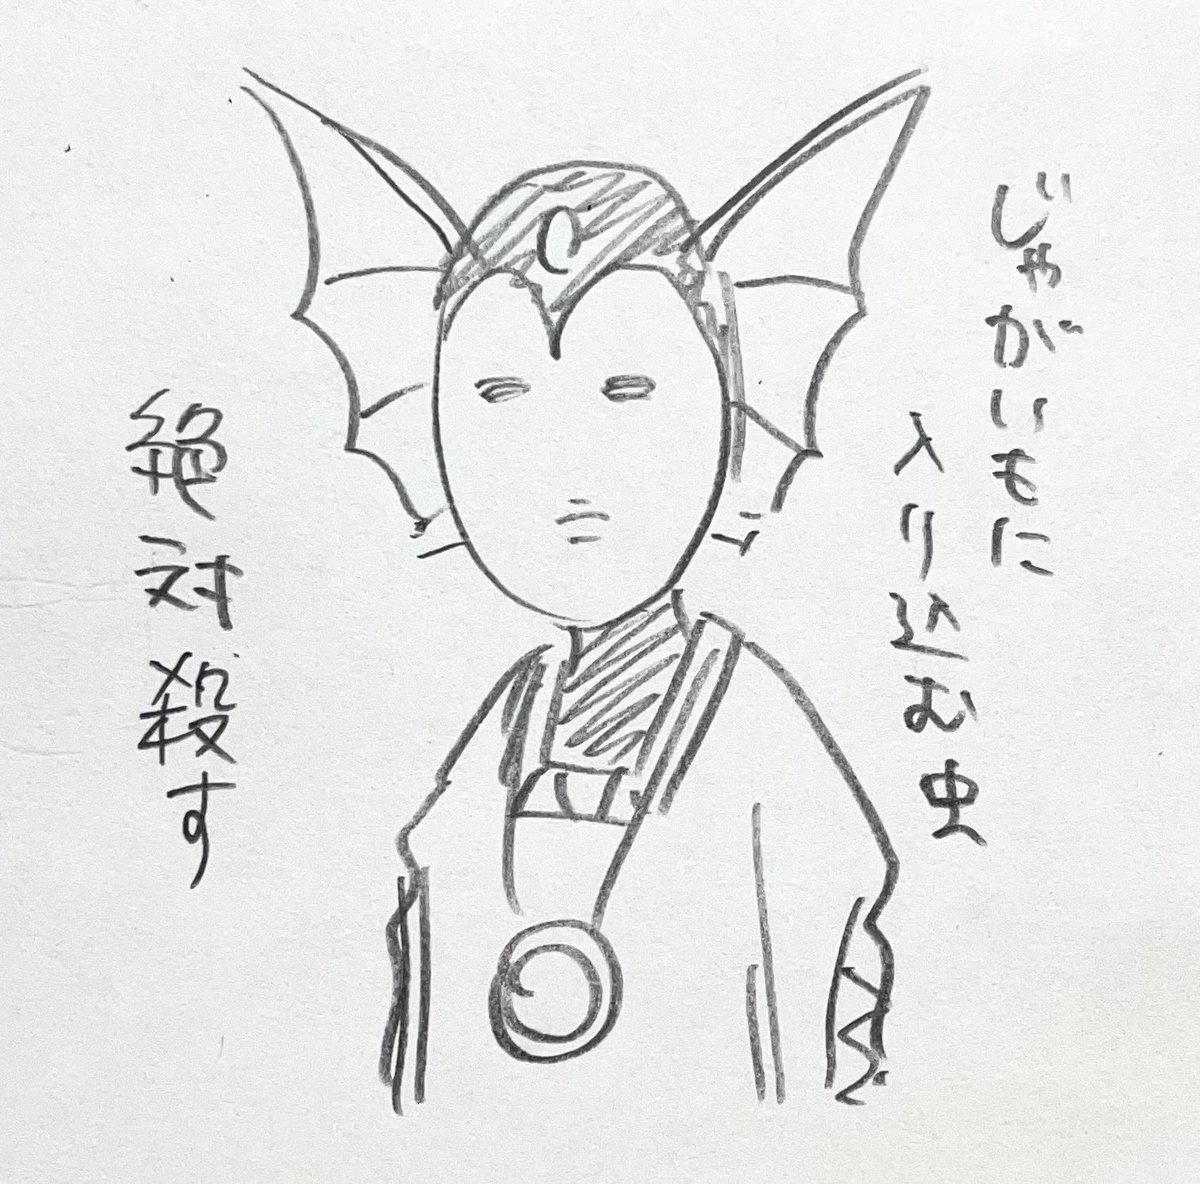 じゃがいもに
入り込む虫
絶対殺す